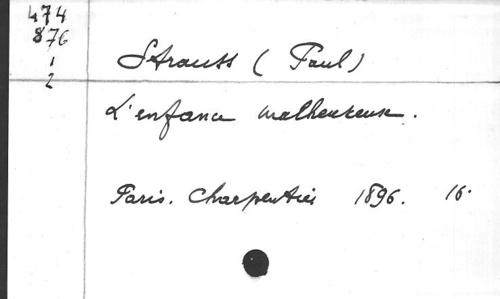 474
876
1
2
Strauss (Paul)
L'enfance malheureuse.
Paris. Charpentier 1896. 16.